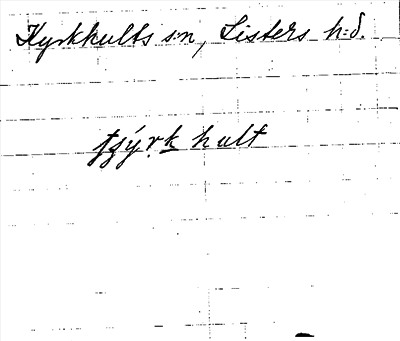 Kyrkhults s:n, Listers h:d.
tjýrk hult